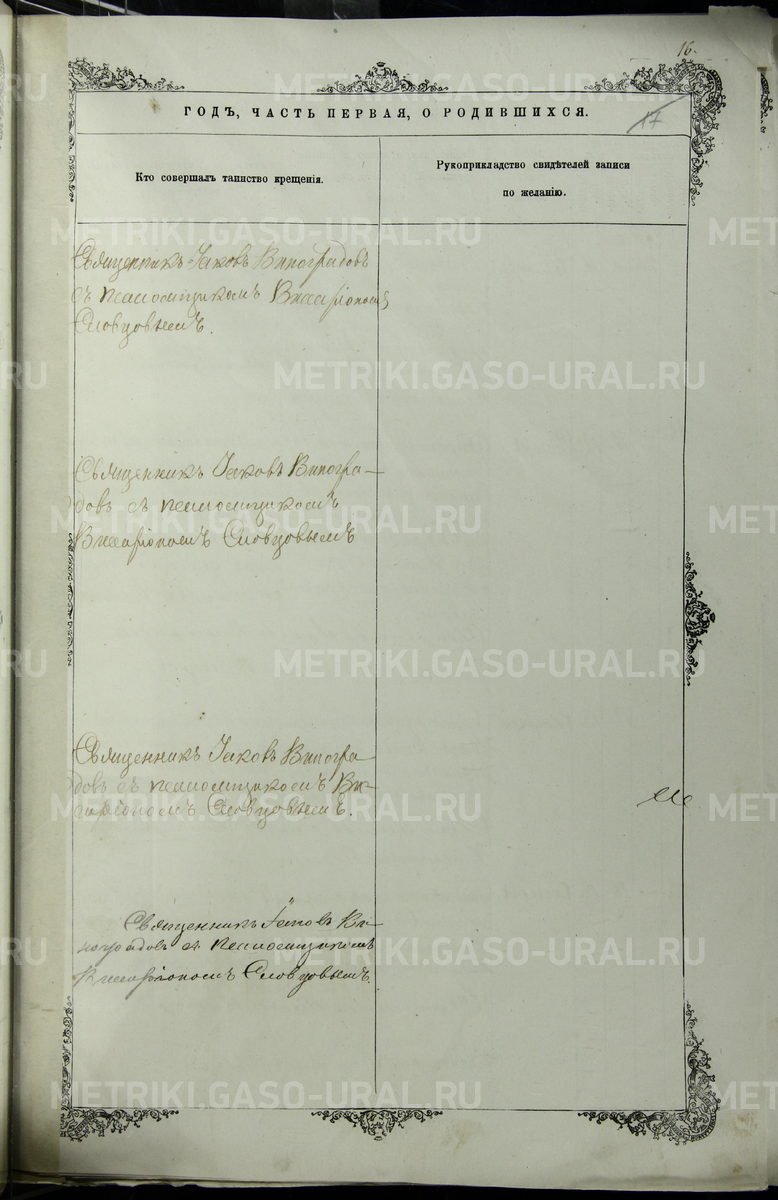 16.
17
ГОДЪ, ЧАСТЬ ПЕРВАЯ, О РОДИВШИХСЯ.
Кто совершалъ таинство крещенія.
Рукоприкладство свидѣтелей записи
по желанію.
Священникъ Іаковъ Виноградовъ
съ псаломщикомъ Виссаріономъ
Словцовымъ.
Священникъ Іаковъ Виногра-
довъ съ псаломщикомъ
Виссаріономъ Словцовымъ
Священникъ Іаковъ Виногра
довъ съ псаломщикомъ Вис-
саріономъ Словцовымъ.
Священникъ Іаковъ Ви-
ноградовъ съ псаломщикомъ
Виссаріономъ Словцовымъ.
METRIKI.GASO-URAL.RU